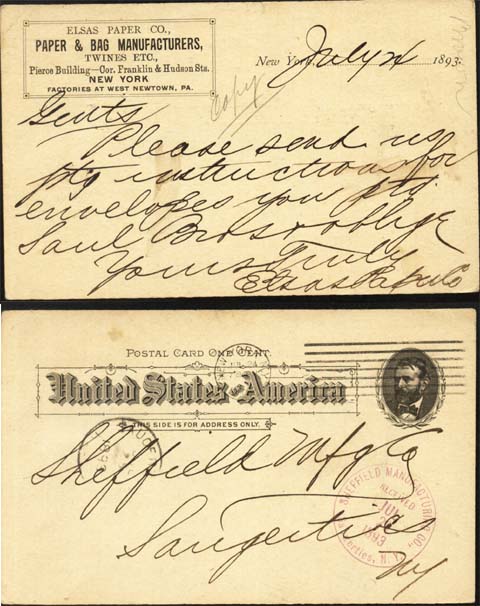 ELSAS PAPER CO.,
PAPER & BAG MANUFACTURERS,
TWINES ETC.,
Pierce Building—Cor. Franklin & Hudson Sts.
NEW YORK
FACTORIES AT WEST NEWTOWN, PA.
New York July 24 1893
Copy
Gents
Please send us
ptg instructions for
envelopes you ptd.
Saul Bros & oblige
Yours Truly
Elsas Paper Co
POSTAL CARD ONE CENT.
United States of America
THIS SIDE IS FOR ADDRESS ONLY.
Sheffield Mfg Co
Saugerties
NY
SHEFFIELD MANUFACTURING CO.
RECEIVED
JUL
1893
Saugerties, N. Y.